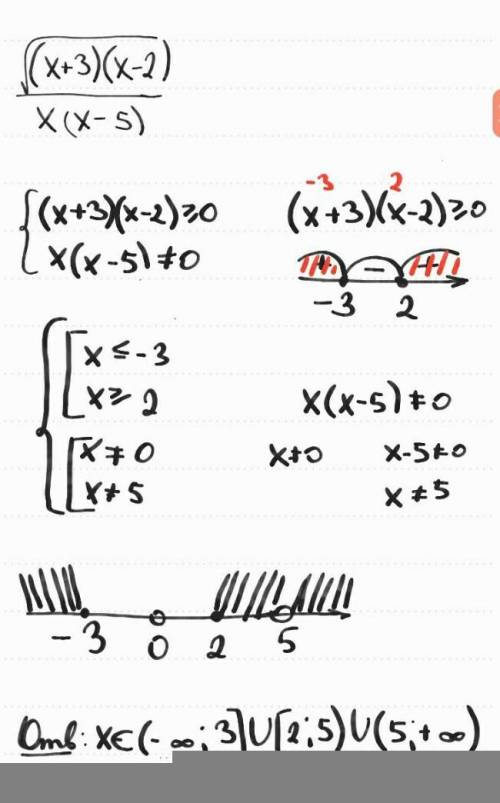 √(x+3)(x-2)
x(x-5)
(x+3)(x-2)≥0
x(x-5)≠0
-3 2
(x+3)(x-2)≥0
+ - +
-3 2
x ≤ -3
x ≥ 2
x ≠ 0
x ≠ 5
x(x-5)≠0
x≠0 x-5≠0
x≠5
-3 0 2 5
Отв: x∈(-∞; 3]∪[2; 5)∪(5; +∞)